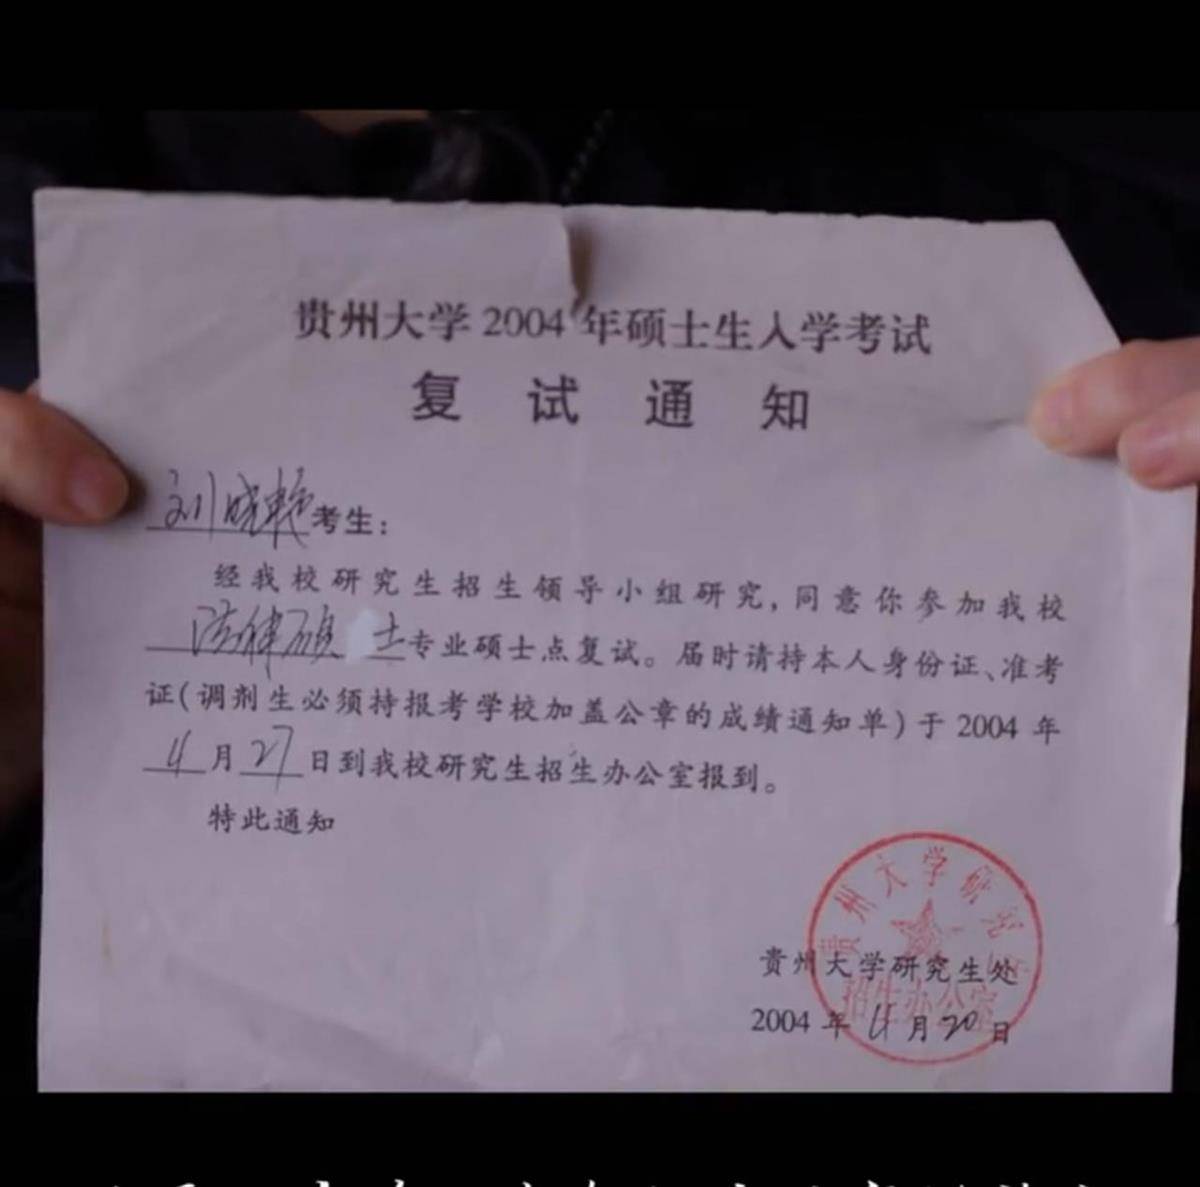 贵州大学2004年硕士生入学考试
复试通知
刘晓艳考生：
经我校研究生招生领导小组研究，同意你参加我校
法律硕士专业硕士点复试。届时请持本人身份证、准考
证(调剂生必须持报考学校加盖公章的成绩通知单)于2004年
4月27日到我校研究生招生办公室报到。
特此通知
贵州大学研究生处
招生办公室
贵州大学研究生处
2004年4月20日